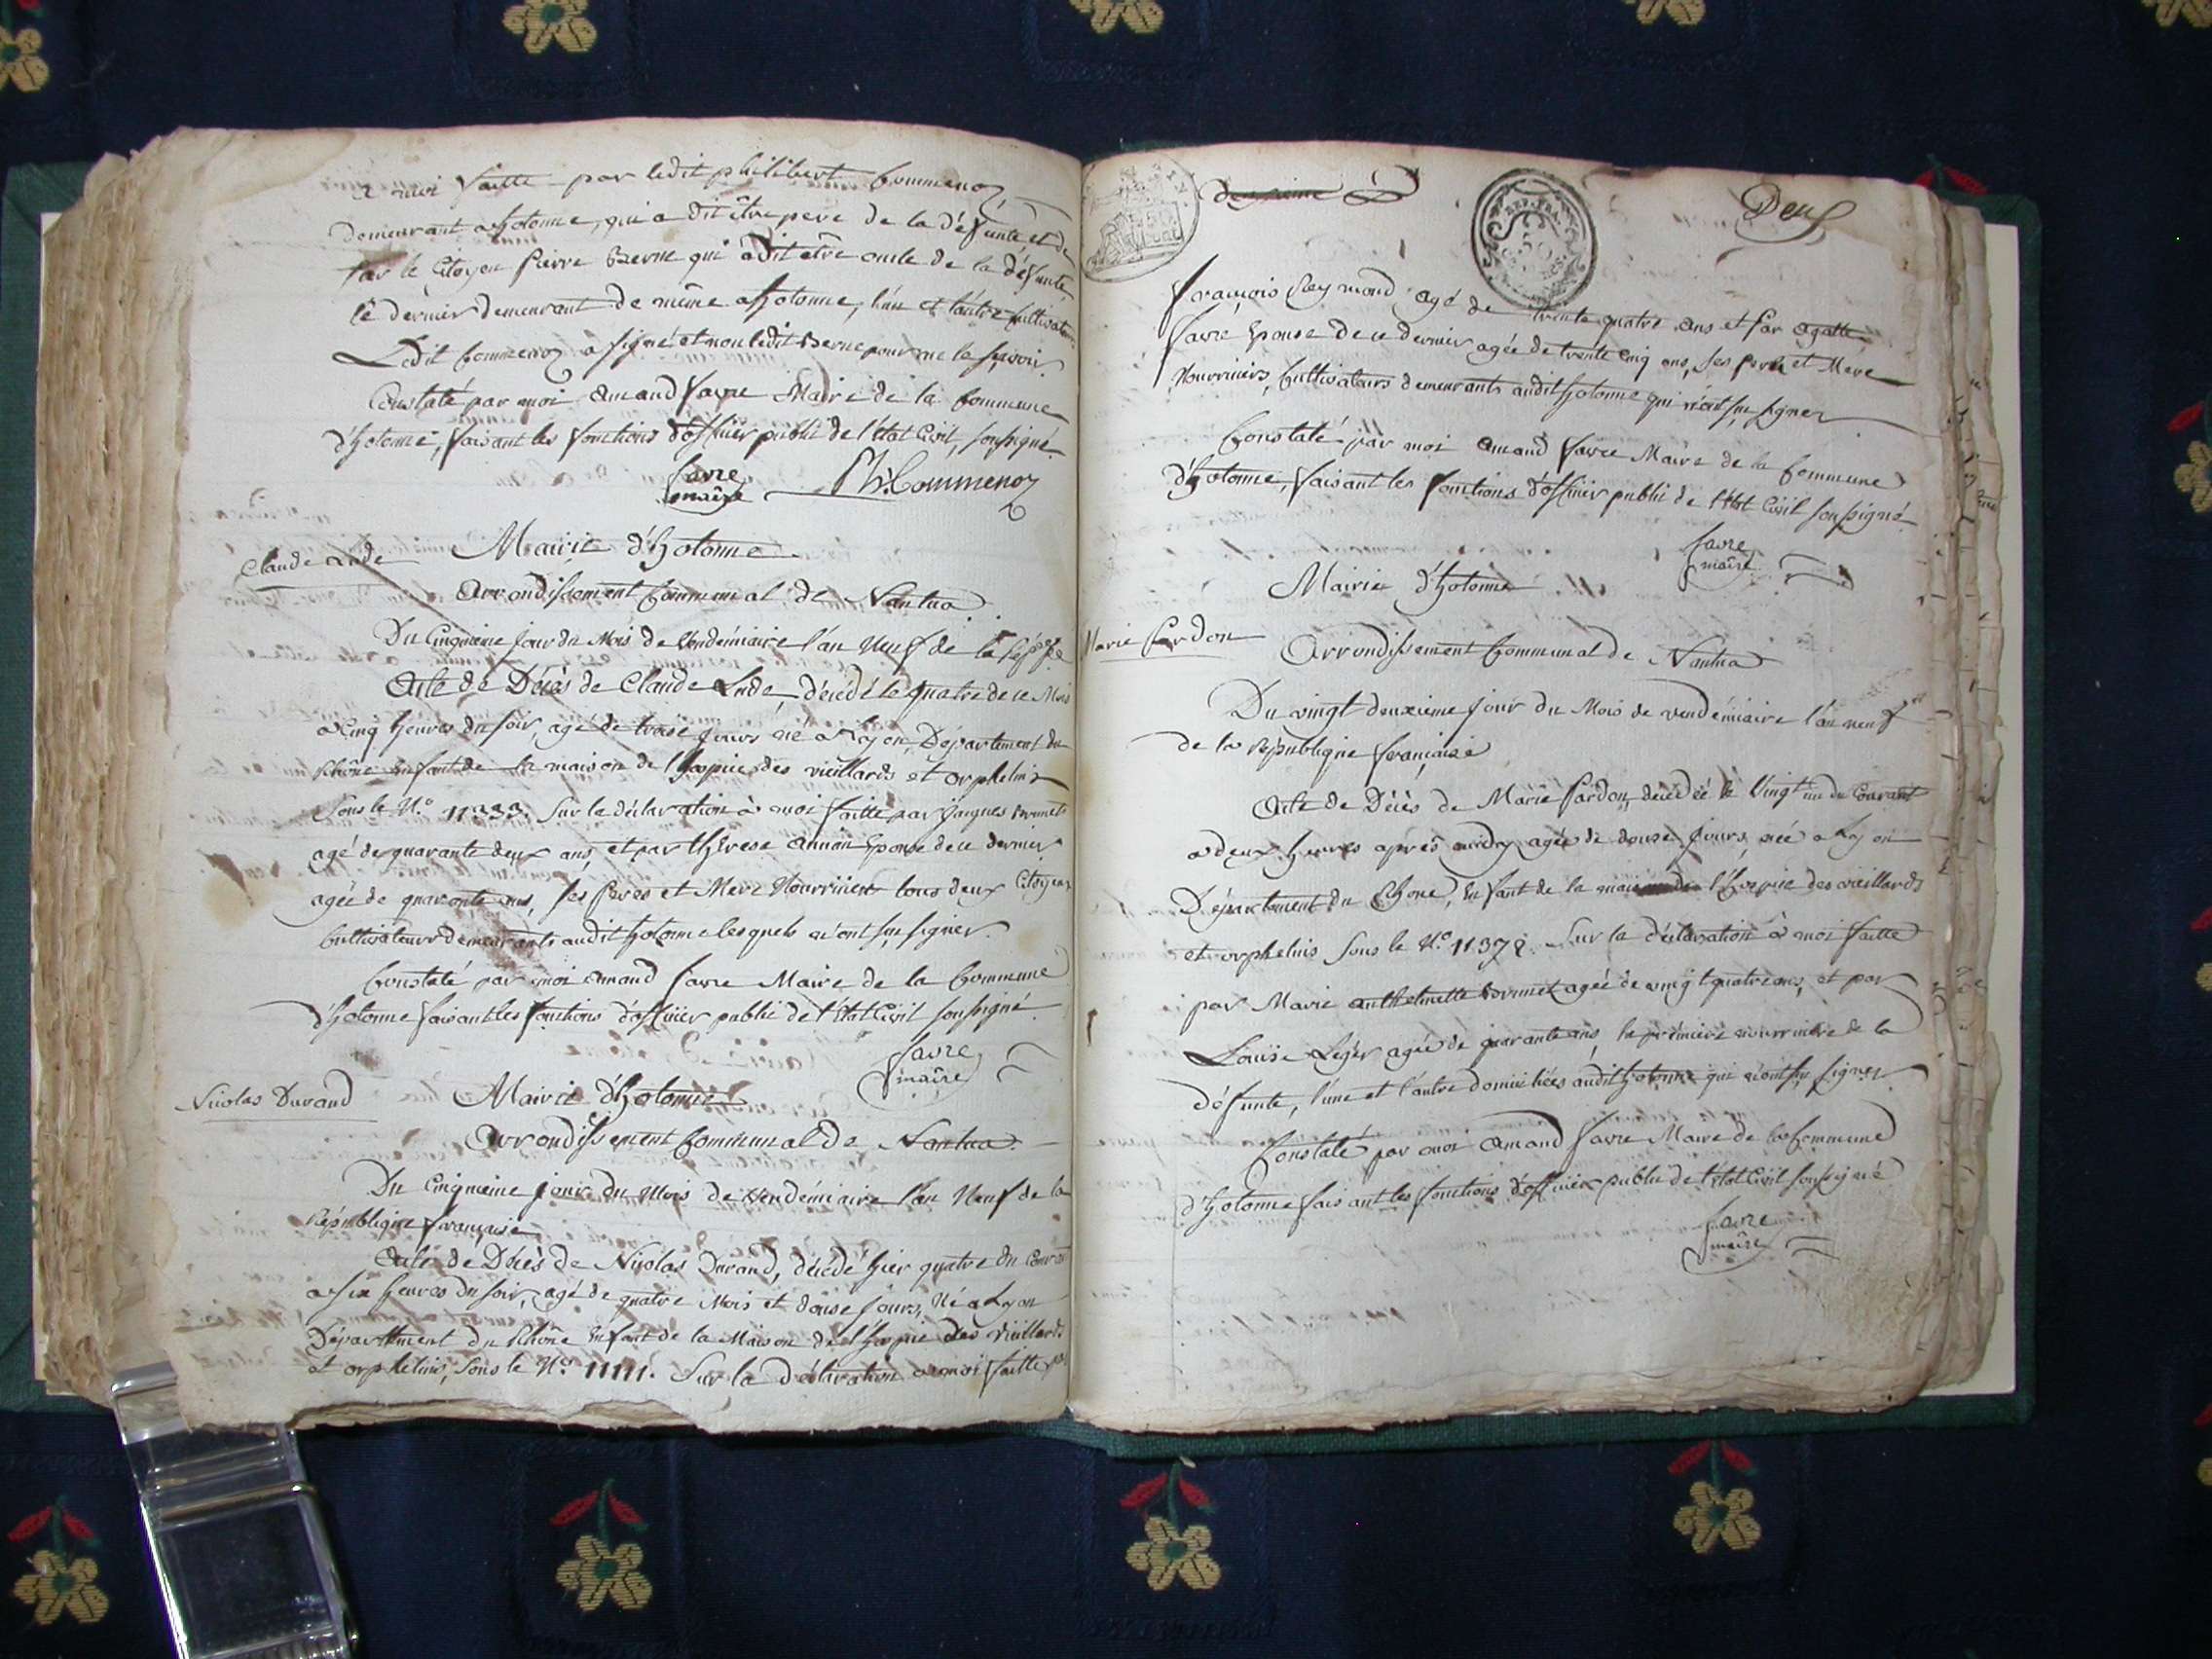 a moi faitte par ledit philibert Commenoz
demeurant a hotonne, qui a dit être pere de la défunte, et de
par le Citoyen pierre Berne qui a dit être oncle de la défunte
le dernier demeurant de même a hotonne, l'un et l'autre cultivateurs
Ledit Commenoz a signé et non ledit Berne pour ne le sçavoir.
Constaté par moi Amand favre Maire de la Commune
d'hotonne, faisant les fonctions d'officier public de l'état Civil, soussigné
favre
maire
Ph: Commenoz
Claude Lude
Mairie d'hotonne
Arrondissement Communal de Nantua
Du Cinquieme jour du Mois de Vendémiaire l'an Neuf de la
Acte de Décès de Claude Lude, décédé le quatre de ce Mois
a Cinq heures du soir, agé de treise jours né a Lyon, Departement du
Rhône enfant de la maison de l'hospice des vieillards et orphelins
sous le N.o 11333. Sur la déclaration à moi faitte par Jaques
agé de quarante deux ans, et par thérese Epouse de ce dernier
agée de quarante ans, ses peres et Mere Nourriciers tous deux Citoyens
Cultivateurs demeurants audit hotonne lesquels n'ont sçu signer.
Constaté par moi Amand favre Maire de la Commune
d'hotonne faisant les fonctions d'officier public de l'état Civil soussigné
favre
maire
Nicolas Durand
Mairie d'hotonne
Arrondissement Communal de Nantua
Du Cinquieme jour du Mois de Vendémiaire l'an Neuf de la
République française
Acte de Décès de Nicolas Durand, décédé hier quatre du
a Six heures du soir, agé de quatre Mois et douse jours, Né a Lyon
Département du Rhône Enfant de la Maison de l'hospice des Vieillards
et orphelins, sous le N.o 11111. Sur la déclaration a moi faitte par
Deux
REP. FRA.
françois Reymond agé de trente quatre ans et par agatte
favre Epouse de ce dernier agée de trente cinq ans, ses pere et Mere
Nourriciers, Cultivateurs demeurants audit hotonne qui n'ont sçu signer
Constaté par moi Amand favre Maire de la Commune
d'hotonne, faisant les fonctions d'officier public de l'état Civil soussigné
favre
maire
Mairie d'hotonne
Marie Pardon
Arrondissement Communal de Nantua
Du vingt deuxieme jour du Mois de vendémiaire l'an neuf
de la République française
Acte de Décès de Marie Pardon, décédée le Vingt un du Courant
a deux heures après midy agée de douse jours née a Lyon
Département du Rhone, Enfant de la maison de l'hospice des vieillards
et orphelins sous le N.o 11378. Sur la déclaration à moi faitte
par Marie anthelmette agée de vingt quatre ans, et par
Louise Leger agée de quarante ans, la premiere nourriciere de la
défunte, l'une et l'autre domiciliées audit hotonne qui n'ont sçu signer
Constaté par moi Amand favre Maire de la Commune
d'hotonne faisant les fonctions d'officier public de l'état Civil soussigné
favre
maire